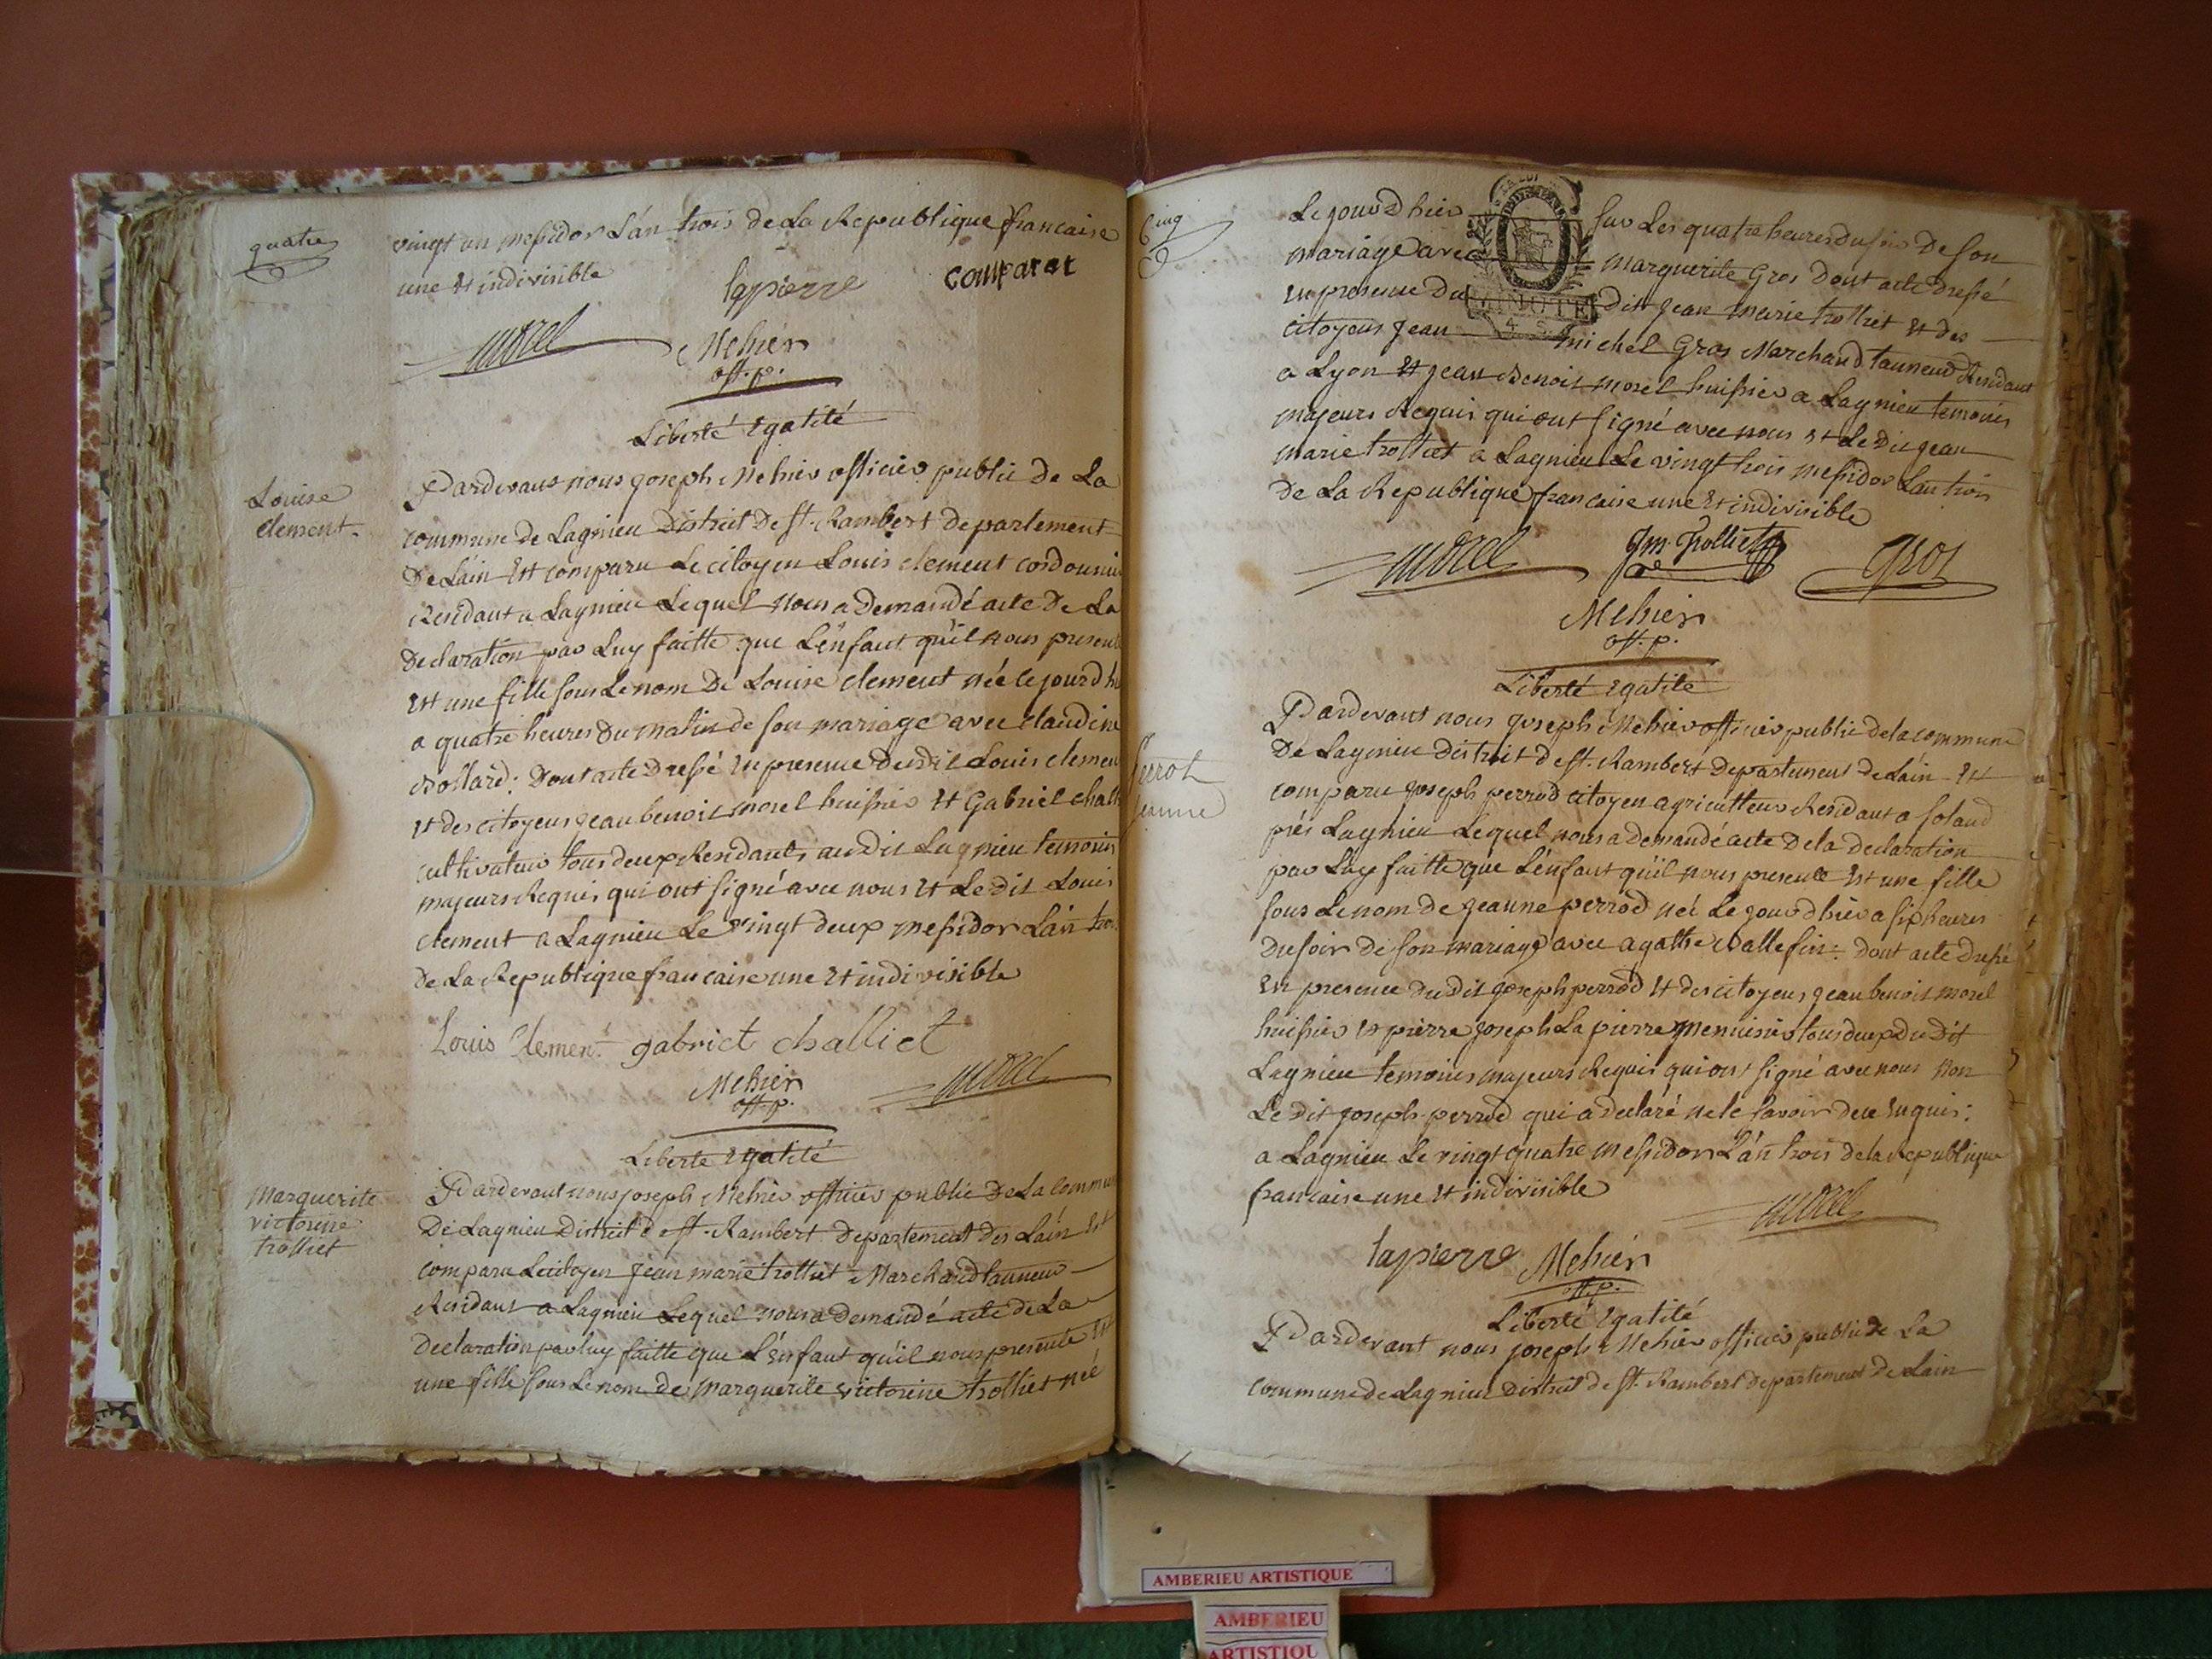 quatre
vingt un messidor L'an trois de La Republique francaise
une Et indivisible
lapierre
comparet
morel
Mehier
off. p.
Liberté Egalité
Louise
clement.
Pardevant nous joseph Mehier officier public de La
commune de Lagnieu District De St. Rambert departement
De L'ain Est comparu Le citoyen Louis clement cordonnier
Residant a Lagnieu Lequel nous a demandé acte De La
Declaration par Luy faitte que L'enfant qu'il nous presente
Est une fille sous Le nom De Louise clement née ce jourd'hu
a quatre heures Du matin de son mariage avec claudine
Dont acte Dressé En presence du dit Louis clemen
Et des citoyens jean benoit morel huissier Et Gabriel challi
cultivateur tous deux Residants au dit Lagnieu temoins
majeurs Requis qui ont signé avec nous Et Le dit Louis
clement a Lagnieu Le vingt deux messidor L'an troi
De La Republique francaise une Et indivisible
Louis Clement
gabriel challiet
Mehier
off. p.
morel
Liberté Egalité
Marguerite
victorine
trolliet
Pardevant nous joseph Mehier officier public De La commu
De Lagnieu District de St. Rambert Departement des L'ain Est
comparu Le citoyen jean marie trolliet Marchand tanneur
Residant a Lagnieu Lequel nous a demandé acte de La
Declaration par luy faitte que L'enfant qu'il nous presente Est
une fille sous Le nom de marguerite victorine trolliet née
Cinq
Le jour d'hier sur Les quatre heures du soir De son
mariage avec marguerite Gros Dont acte Dressé
En presence du dit jean marie trolliet Et des
citoyens jean michel Gros Marchand tanneur Residant
a Lyon Et jean Benoit morel huissier a Lagnieu temoins
majeurs Requis qui ont signé avec nous Et Le dit jean
marie trolliet a Lagnieu Le vingt trois messidor L'an trois
De La Republique francaise une Et indivisible
morel
jm. Trolliet
Gros
Mehier
off. p.
Liberté Egalité
Perrot
jeanne
Pardevant nous joseph Mehier officier public de la commune
De Lagnieu District de St. Rambert Departement De L'ain Est
comparu joseph perrod citoyen agriculteur Residant a
près Lagnieu Lequel nous a demandé acte De la Declaration
par Luy faitte que L'enfant qu'il nous presente Est une fille
sous Le nom de jeanne perrod née Le jour d'hier a six heures
Du soir De son mariage avec agathe Dont acte dressé
En presence Du dit joseph perrod Et des citoyens jean benoit morel
huissier Et pierre joseph La pierre menuisier tous deux Du Dit
Lagnieu temoins majeurs Requis qui ont signé avec nous non
Le Dit joseph perrod qui a declaré ne le savoir de ce Enquis:
a Lagnieu Le vingt quatre messidor L'an trois de la Republique
francaise une Et indivisible
morel
lapierre
Mehier
off. p.
Liberté Egalité
Pardevant nous joseph Mehier officier public De La
commune de Lagnieu District de St. Rambert departement de L'ain
AMBERIEU ARTISTIQUE
AMBERIEU
ARTISTIQU